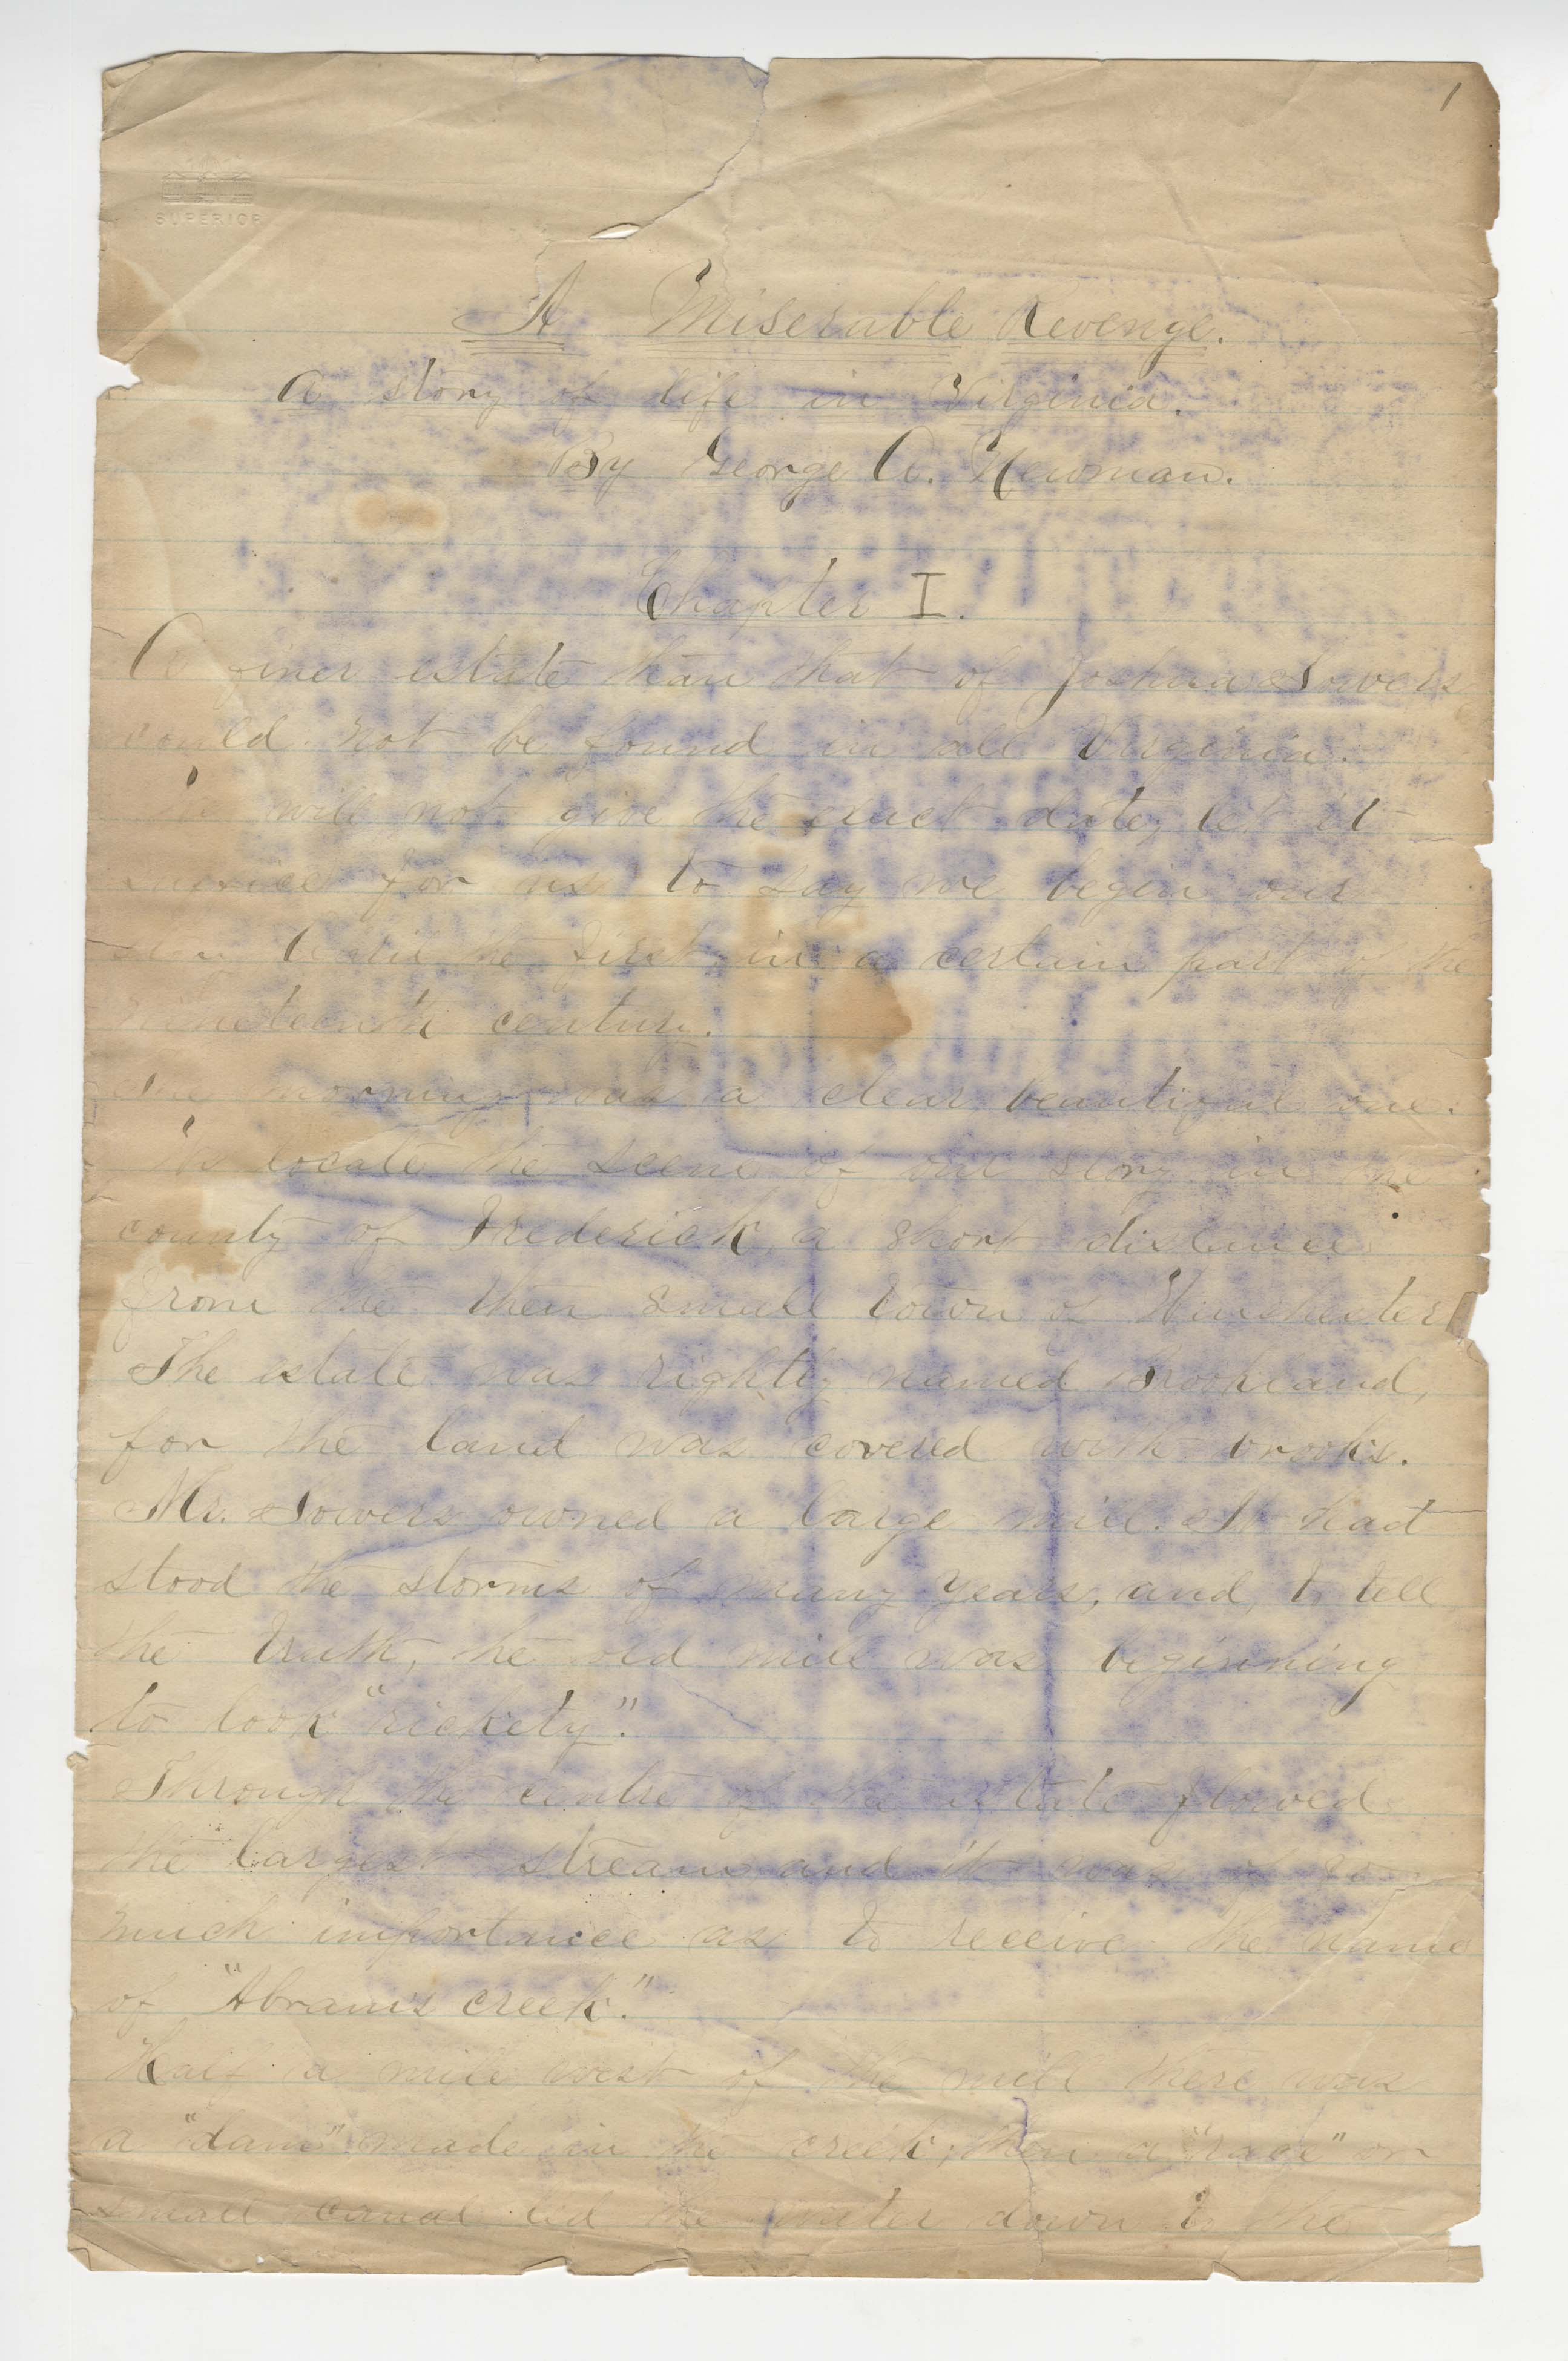 1
SUPERIOR
A Miserable Revenge.
A story of life in Virginia.
By George A. Newman.
Chapter I.
A finer estate than that of Joshua Sowers
could not be found in all Virginia.
We will not give the exact date, let it
suffice for us to say we begin our
story April the first in a certain part of the
nineteenth century.
The morning was a clear beautiful one.
We locate the scene of our story in the
county of Frederick, a short distance
from the then small town of Winchester
The estate was rightly named Brookland,
for the land was covered with brooks.
Mr. Sowers owned a large mill. It had
stood the storms of many years, and, to tell
the truth, the old mill was beginning
to look "rickety".
Through the centre of the estate flowed
the largest stream and it was of so
much importance as to receive the name
of "Abram's creek."
Half a mile west of the mill there was
a "dam" made in the creek; then a "race" or
small canal led the water down to the